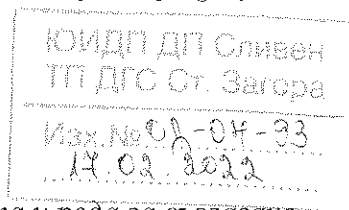 ЮИДП ДП Сливен
ТП ДГС Ст. Загора
Изх. № 02-04-93
17.02.2022